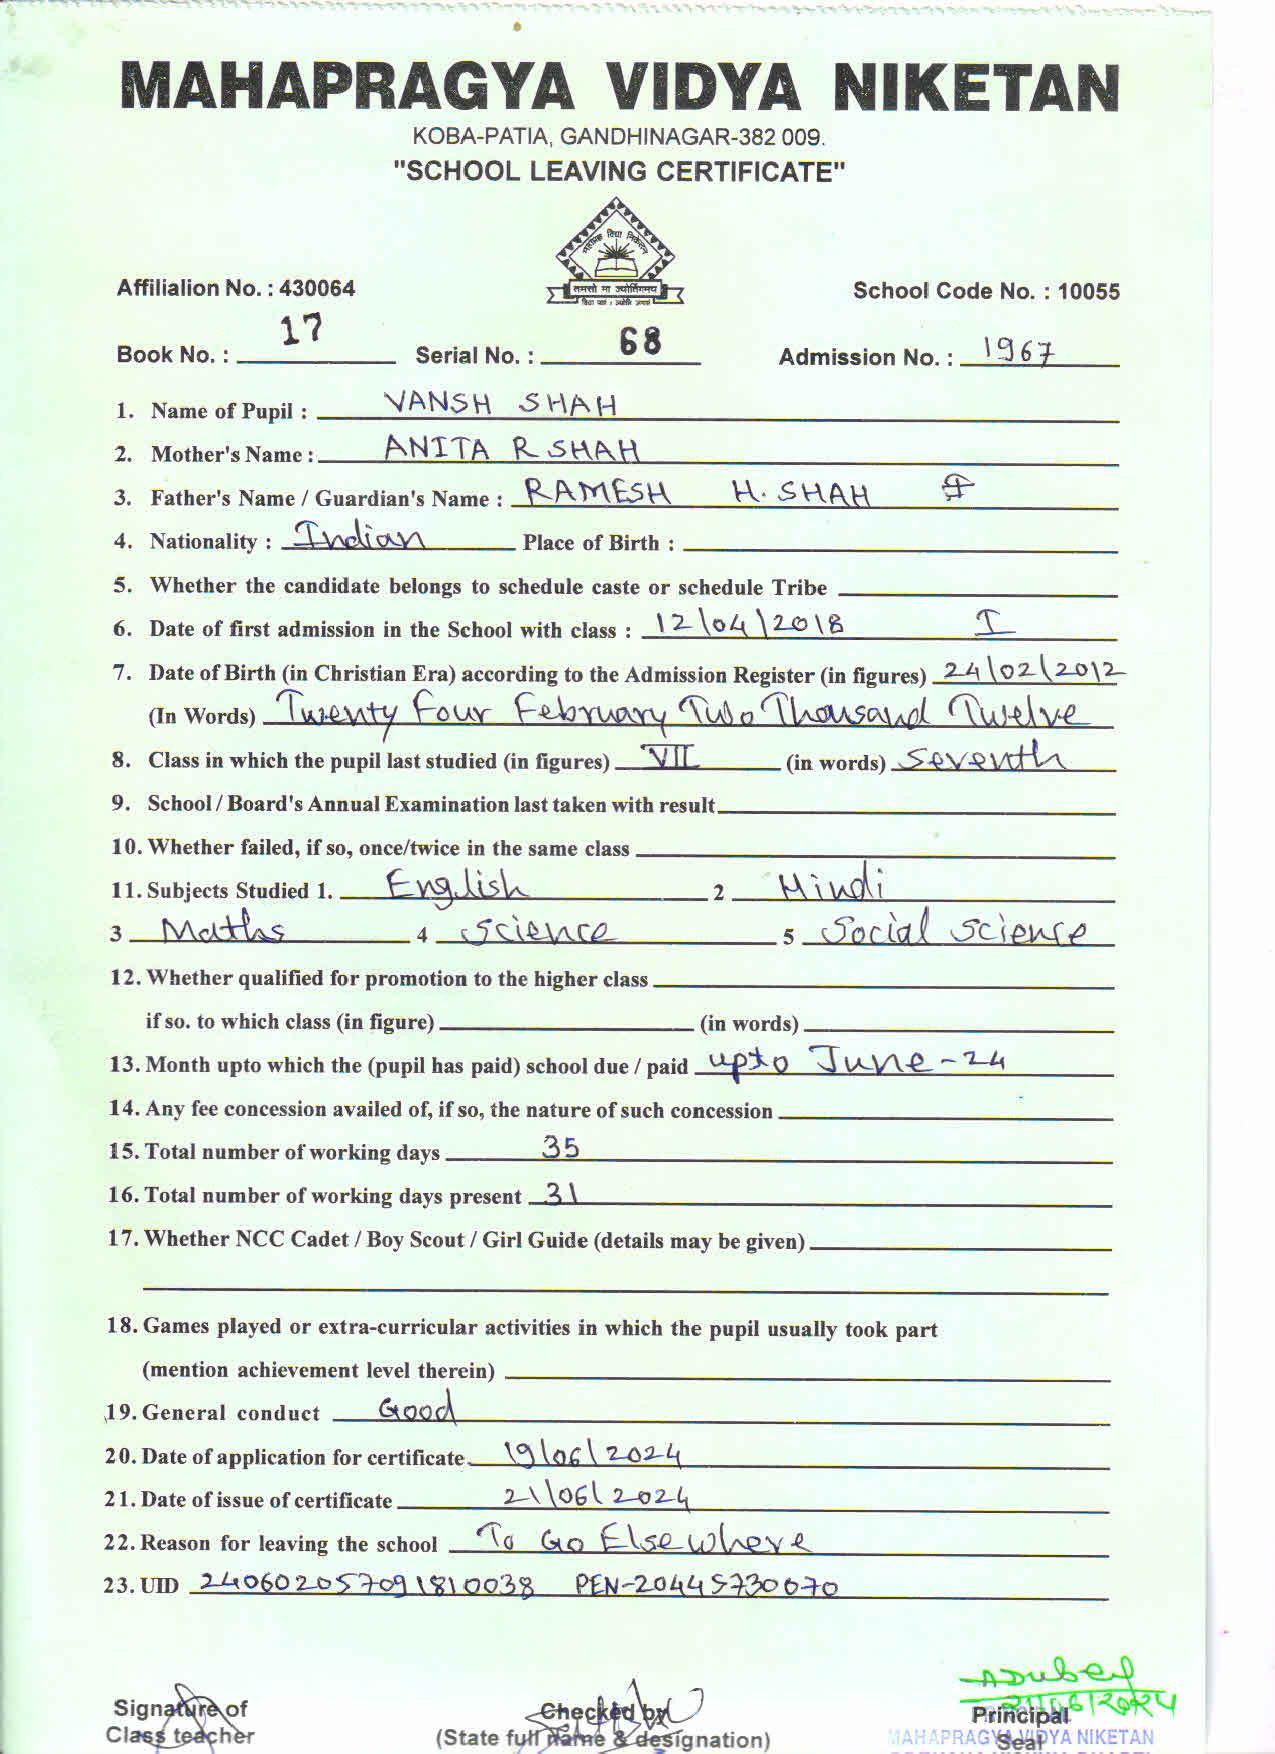 MAHAPRAGYA VIDYA NIKETAN
KOBA-PATIA, GANDHINAGAR-382 009.
"SCHOOL LEAVING CERTIFICATE"
महाप्रज्ञ विद्या निकेतन
तमसो मा ज्योतिर्गमय
Affilialion No. : 430064 School Code No. : 10055
Book No. : 17 Serial No. : 68 Admission No. : 1967
1. Name of Pupil : VANSH SHAH
2. Mother's Name : ANITA R SHAH
3. Father's Name / Guardian's Name : RAMESH H. SHAH
4. Nationality : Indian Place of Birth :
5. Whether the candidate belongs to schedule caste or schedule Tribe
6. Date of first admission in the School with class : 12\04\2018 I
7. Date of Birth (in Christian Era) according to the Admission Register (in figures) 24\02\2012
(In Words) Twenty Four February Two Thousand Twelve
8. Class in which the pupil last studied (in figures) VII (in words) Seventh
9. School / Board's Annual Examination last taken with result
10. Whether failed, if so, once/twice in the same class
11. Subjects Studied 1. English 2 Hindi
3 Maths 4 Science 5 Social Science
12. Whether qualified for promotion to the higher class
if so. to which class (in figure) (in words)
13. Month upto which the (pupil has paid) school due / paid upto June-24
14. Any fee concession availed of, if so, the nature of such concession
15. Total number of working days 35
16. Total number of working days present 31
17. Whether NCC Cadet / Boy Scout / Girl Guide (details may be given)
18. Games played or extra-curricular activities in which the pupil usually took part
(mention achievement level therein)
19. General conduct Good
20. Date of application for certificate 19\06\2024
21. Date of issue of certificate 21\06\2024
22. Reason for leaving the school To Go Elsewhere
23. UID 240602057091810038 PEN-20445730670
21/06/2024
Signature of Checked by Principal
Class teacher (State full name & designation) Seal
MAHAPRAGYA VIDYA NIKETAN